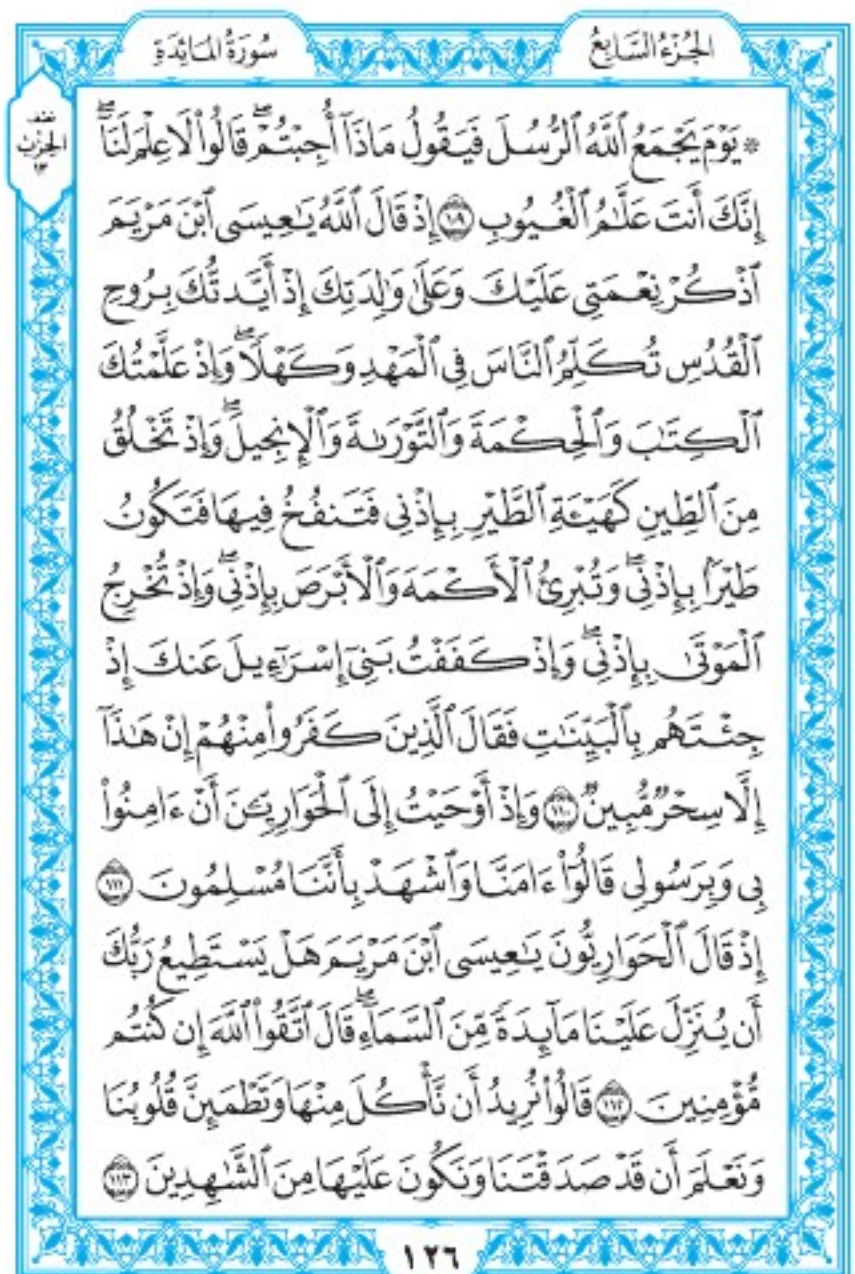 الجُزْءُ السَّابِعُ
سُورَةُ المَائِدَةِ
نصف
الحِزْب
١٣
۞ يَوْمَ يَجْمَعُ ٱللَّهُ ٱلرُّسُلَ فَيَقُولُ مَاذَآ أُجِبْتُمْۖ قَالُوا۟ لَا عِلْمَ لَنَآۖ
إِنَّكَ أَنتَ عَلَّـٰمُ ٱلْغُيُوبِ ١٠٩ إِذْ قَالَ ٱللَّهُ يَـٰعِيسَى ٱبْنَ مَرْيَمَ
ٱذْكُرْ نِعْمَتِى عَلَيْكَ وَعَلَىٰ وَٰلِدَتِكَ إِذْ أَيَّدتُّكَ بِرُوحِ
ٱلْقُدُسِ تُكَلِّمُ ٱلنَّاسَ فِى ٱلْمَهْدِ وَكَهْلًاۖ وَإِذْ عَلَّمْتُكَ
ٱلْكِتَـٰبَ وَٱلْحِكْمَةَ وَٱلتَّوْرَىٰةَ وَٱلْإِنجِيلَۖ وَإِذْ تَخْلُقُ
مِنَ ٱلطِّينِ كَهَيْـَٔةِ ٱلطَّيْرِ بِإِذْنِى فَتَنفُخُ فِيهَا فَتَكُونُ
طَيْرًۢا بِإِذْنِىۖ وَتُبْرِئُ ٱلْأَكْمَهَ وَٱلْأَبْرَصَ بِإِذْنِىۖ وَإِذْ تُخْرِجُ
ٱلْمَوْتَىٰ بِإِذْنِىۖ وَإِذْ كَفَفْتُ بَنِىٓ إِسْرَٰٓءِيلَ عَنكَ إِذْ
جِئْتَهُم بِٱلْبَيِّنَـٰتِ فَقَالَ ٱلَّذِينَ كَفَرُوا۟ مِنْهُمْ إِنْ هَـٰذَآ
إِلَّا سِحْرٌ مُّبِينٌ ١١٠ وَإِذْ أَوْحَيْتُ إِلَى ٱلْحَوَارِيِّـۧنَ أَنْ ءَامِنُوا۟
بِى وَبِرَسُولِى قَالُوٓا۟ ءَامَنَّا وَٱشْهَدْ بِأَنَّنَا مُسْلِمُونَ ١١١
إِذْ قَالَ ٱلْحَوَارِيُّونَ يَـٰعِيسَى ٱبْنَ مَرْيَمَ هَلْ يَسْتَطِيعُ رَبُّكَ
أَن يُنَزِّلَ عَلَيْنَا مَآئِدَةً مِّنَ ٱلسَّمَآءِۖ قَالَ ٱتَّقُوا۟ ٱللَّهَ إِن كُنتُم
مُّؤْمِنِينَ ١١٢ قَالُوا۟ نُرِيدُ أَن نَّأْكُلَ مِنْهَا وَتَطْمَئِنَّ قُلُوبُنَا
وَنَعْلَمَ أَن قَدْ صَدَقْتَنَا وَنَكُونَ عَلَيْهَا مِنَ ٱلشَّـٰهِدِينَ ١١٣
١٢٦